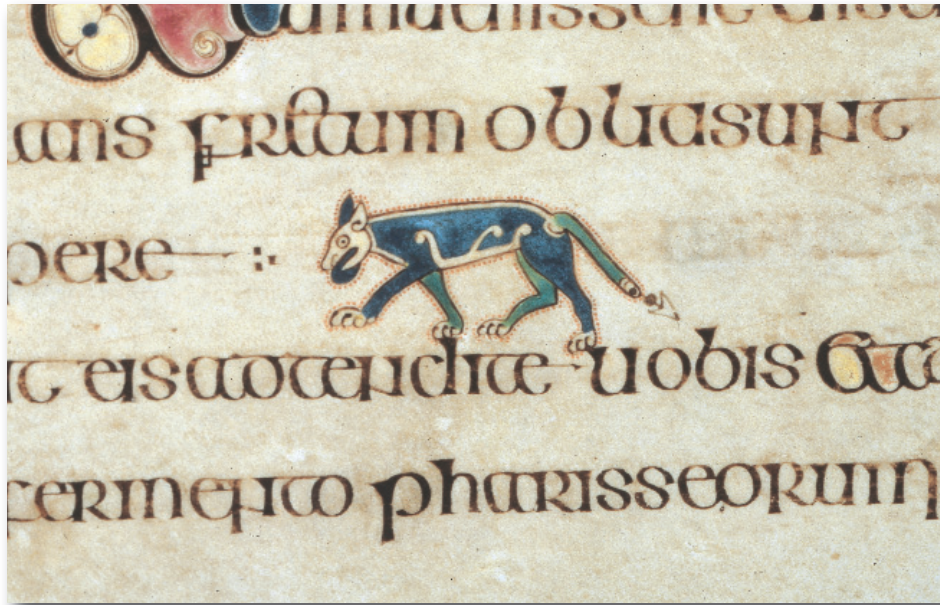 ans fretum obliti sunt
pere
it eis adtendite uobis
ermento pharisseorum